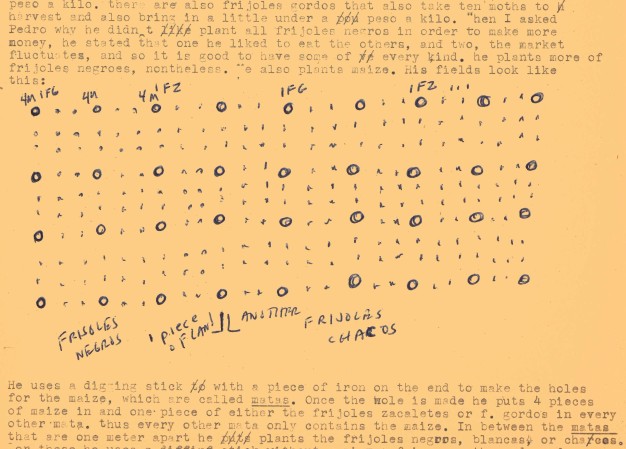 peso a kilo. there are also frijoles gordos that also take ten moths to
harvest and also bring in a little under a peso a kilo. "hen I asked
Pedro why he didn t plant all frijoles negros in order to make more
money, he stated that one he liked to eat the others, and two, the market
fluctuates, and so it is good to have some of every kind. he plants more of
frijoles negroes, nontheless. "e also plants maize. His fields look like
this:
4M 1FG 4M 4M 1FZ 1FG 1FZ ...
FRIJOLES NEGROS
1 piece of land
ANOTHER
FRIJOLES CHACOS
He uses a digging stick with a piece of iron on the end to make the holes
for the maize, which are called matas. Once the hole is made he puts 4 pieces
of maize in and one piece of either the frijoles zacaletes or f. gordos in every
other mata. thus every other mata only contains the maize. In between the matas
that are one meter apart he plants the frijoles negros, blancas, or chacos.